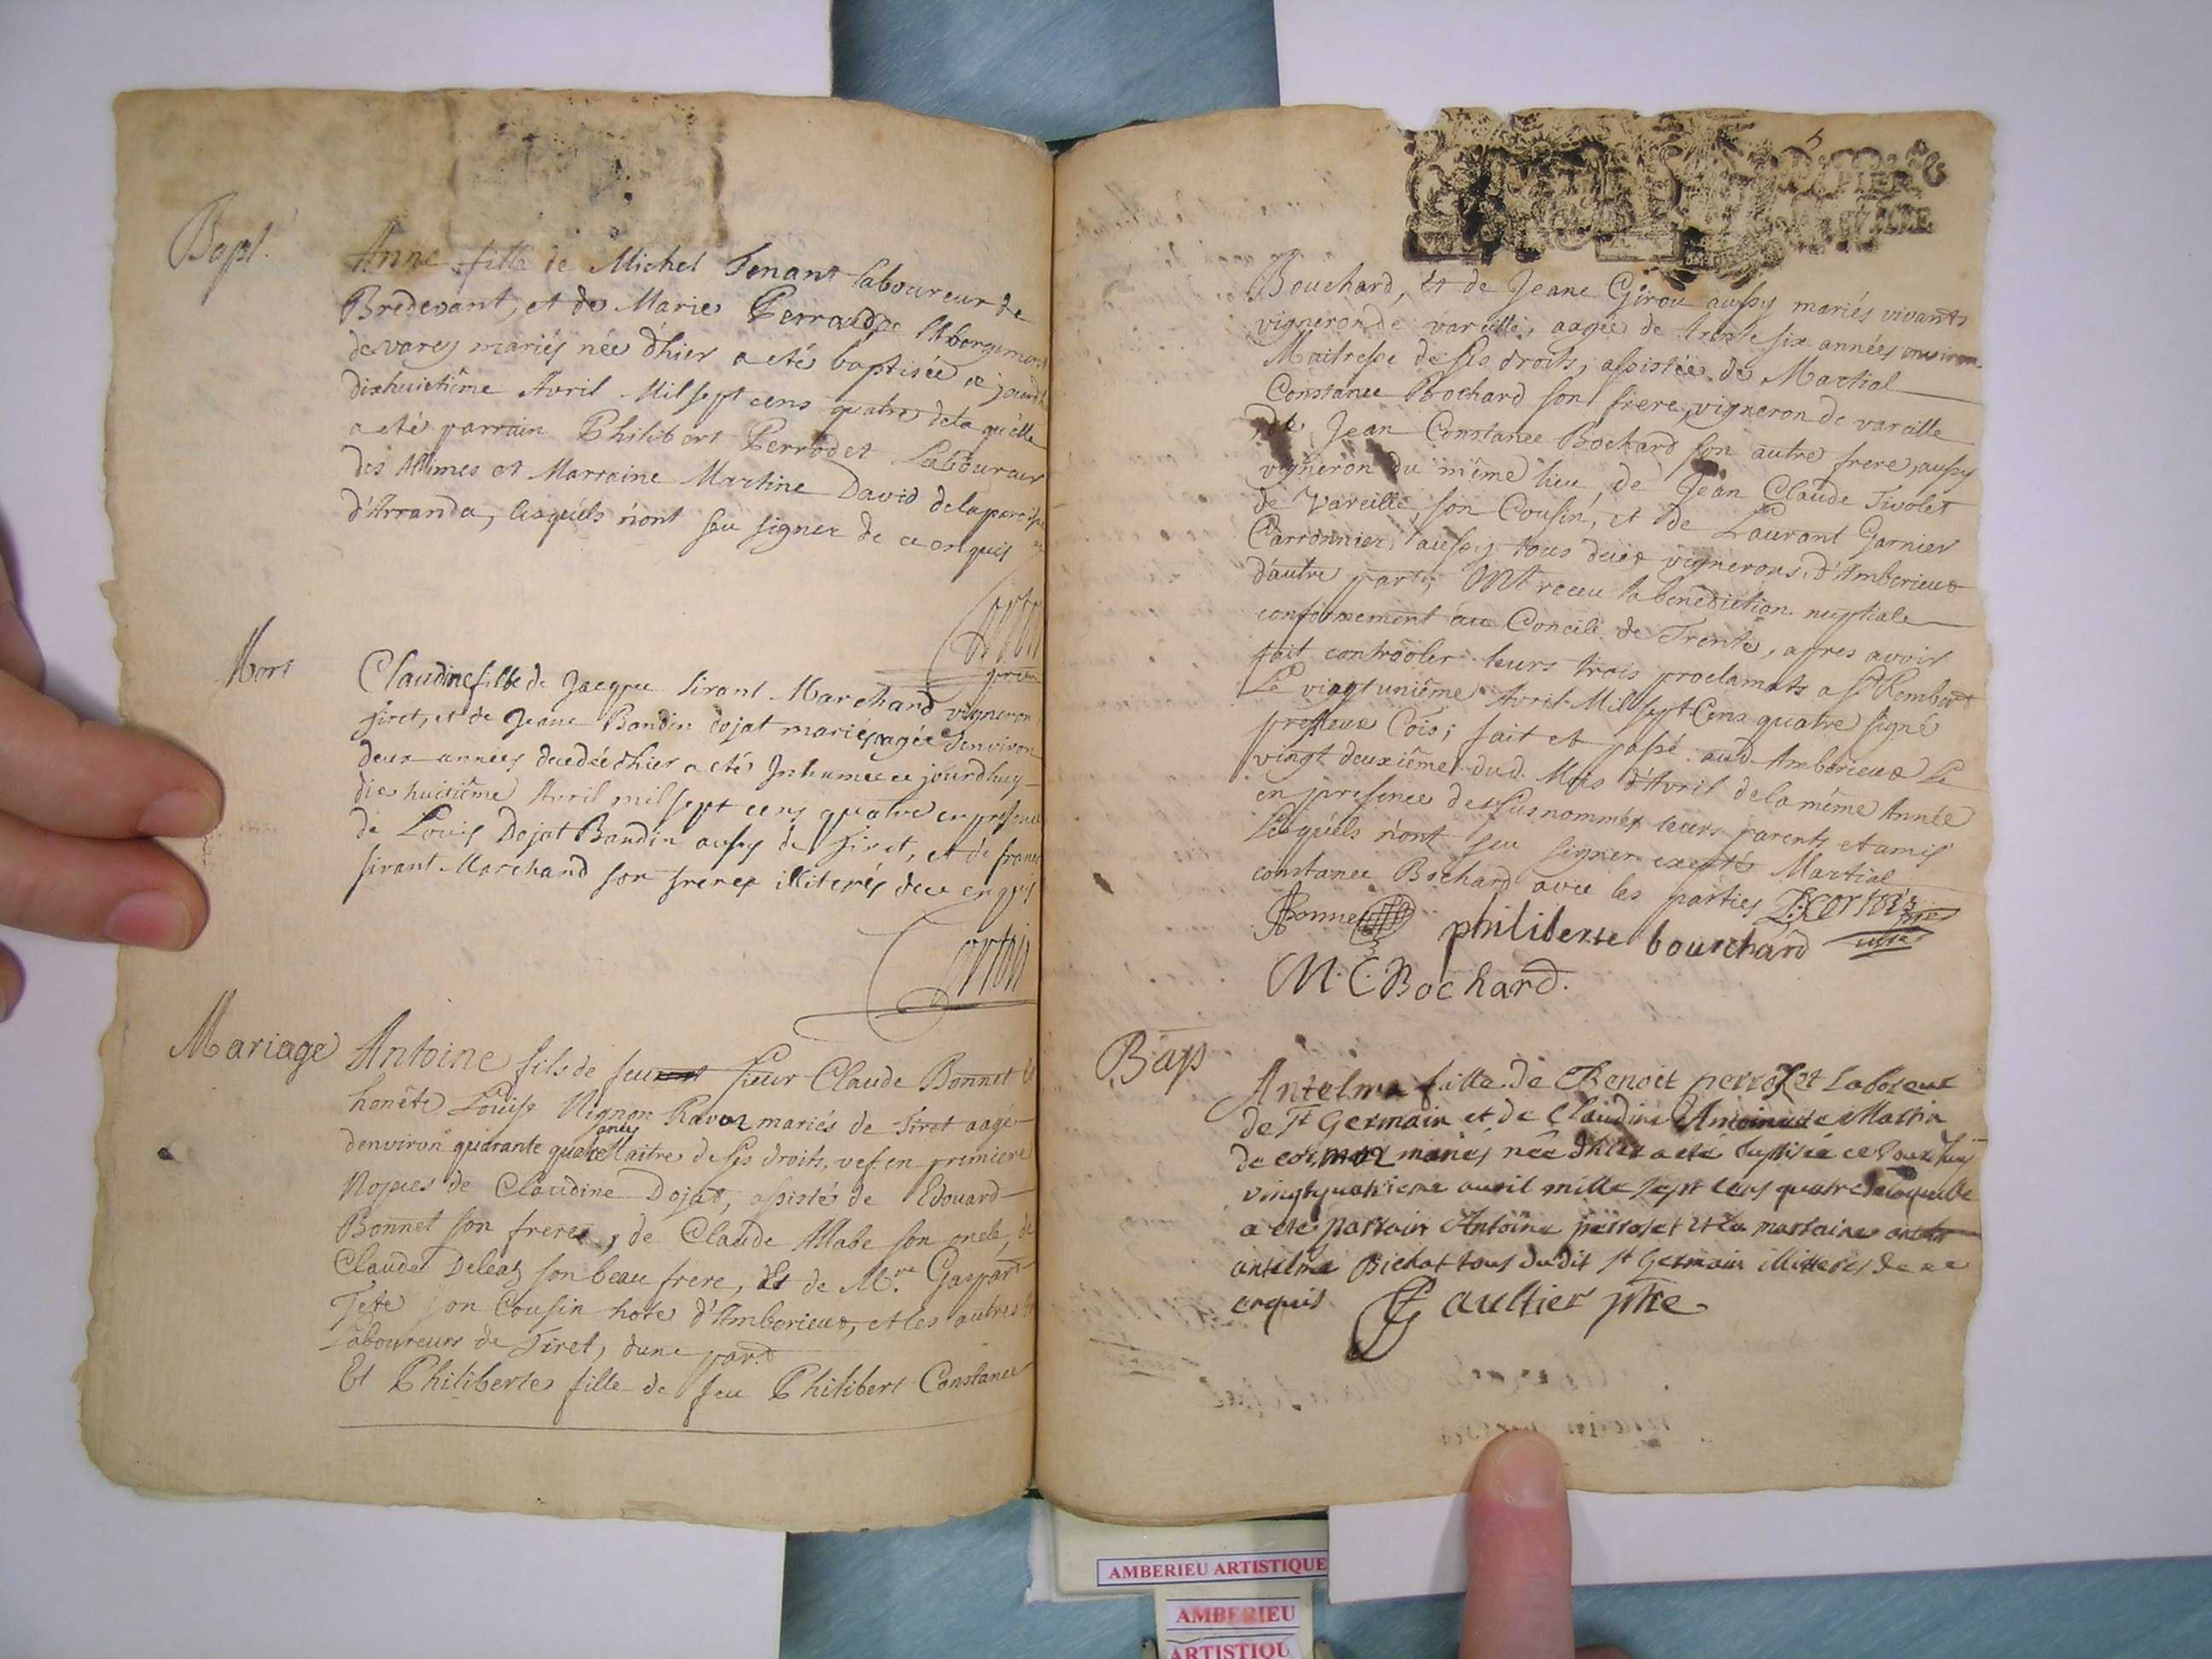 Bapt.
Anne fille de Michel Tenant laboureur de
Bredevant, et de Marie Perraud de l'Abergement
de varey mariés née d'hier a eté baptisée ce jourdh
dixhuictiême Avril Mil sept cens quatre de laquélle
a eté parrain Philibert Perrodet Laboureur
des Allimes et Marraine Martine David de la paroisse
d'Arranda, lesquéls n'ont sçu signer de ce enquis
Cortois
Mort
Claudine fille de Jacque sirant Marchand vigneron
tiret, et de Jeane Bandin dojat mariés, agée denviron
deux années decedée d'hier a eté Inhumée ce jourdhuy
dix huitiême Avril mil sept cens quatre en presence
de Louis Dojat Bandin aussy de tiret, et de france
sirant Marchand son frere illiterés de ce enquis
Cortois
Mariage
Antoine fils de feu sieur Claude Bonnet &
honête Louise Nignon Ravoz mariés de tiret aagé
denviron quarante quatre anées Maitre de ses droits, vef en premiere
Nopces de Claudine Dojat, assisté de Edouard
Bonnet son frere, de Claude Mabe son oncle, de
Claude Deleaz son beau frere, Et de Mre. Gaspard
Tete son Cousin hote d'Amberieux, et les autres
Laboureurs de Tiret, dune part.
Et Philiberte fille de feu Philibert Constance
Bouchard, et de Jeane Girou aussy mariés vivants
vigneron de vareille, aagée de trente six années environ
Maitresse de ses droits, assistée de Martial
Constance Bochard son frere, vigneron de vareille
de Jean Constance Bochard son autre frere, aussy
vigneron du même lieu, de Jean Claude Tivolet
de Vareille, son Cousin, et de Laurant Garnier
Carronnier, aussy tous deux vignerons d'Amberieux
d'autre part, Ont receu la benediction nuptiale
conformement au Concile de Trente, apres avoir
fait contrôoler leurs trois proclamats a St Rembert
Le vingt uniême Avril Mil sept Cens quatre signé
fait et passé aud. Amberieux Le
vingt deuxiême dud. Mois d'Avril de la même Année
en presence des susnommés leurs parents et amis
Lesquéls n'ont sçu signer excepté Martial
constance Bochard avec les parties
ABonnet philiberte bourchard
M. C. Bochard.
Bap
Antelma fille de Benoit perroset Laboreur
de St Germain et de Claudine Antoinette Martin
de mariés née dhier a eté baptisée ce Jourdhuy
vingtquatrieme auril mille sept cens quatre de laquelle
a ete parrain Antoine perroset et la marraine
antelma Bichat tous dudit st Germain illitteres de ce
enquis Gaultier ptre
AMBERIEU ARTISTIQUE
AMBERIEU
ARTISTIQU